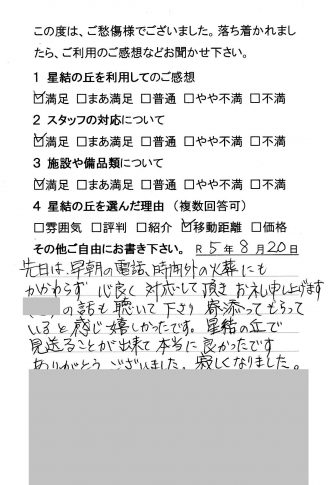 この度は、ご愁傷様でございました。落ち着かれまし
たら、ご利用のご感想などお聞かせ下さい。
1 星結の丘を利用してのご感想
☑満足 □まあ満足 □普通 □やや不満 □不満
2 スタッフの対応について
☑満足 □まあ満足 □普通 □やや不満 □不満
3 施設や備品類について
☑満足 □まあ満足 □普通 □やや不満 □不満
4 星結の丘を選んだ理由（複数回答可）
□雰囲気 □評判 □紹介 ☑移動距離 □価格
その他ご自由にお書き下さい。 R 5年 8月 20日
先日は、早朝の電話、時間外の火葬にも
かかわらず 心良く 対応して頂き お礼申し上げます
の話も 聴いて下さり 寄添ってもらって
いると感じ 嬉しかったです。星結の丘で
見送ることが出来て 本当に 良かったです
ありがとう ございました。寂しくなりました。